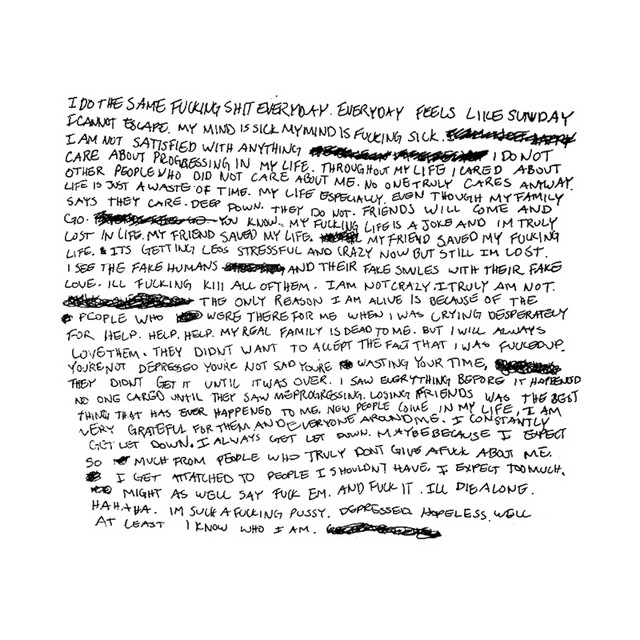 I DO THE SAME FUCKING SHIT EVERYDAY. EVERYDAY FEELS LIKE SUNDAY
I CANNOT ESCAPE. MY MIND IS SICK MY MIND IS FUCKING SICK.
I AM NOT SATISFIED WITH ANYTHING I DO NOT
CARE ABOUT PROGRESSING IN MY LIFE. THROUGHOUT MY LIFE I CARED ABOUT
OTHER PEOPLE WHO DID NOT CARE ABOUT ME. NO ONE TRULY CARES ANYWAY.
LIFE IS JUST A WASTE OF TIME. MY LIFE ESPECIALLY. EVEN THOUGH MY FAMILY
SAYS THEY CARE. DEEP DOWN. THEY DO NOT. FRIENDS WILL COME AND
GO. YOU KNOW. MY FUCKING LIFE IS A JOKE AND IM TRULY
LOST IN LIFE. MY FRIEND SAVED MY LIFE. MY FRIEND SAVED MY FUCKING
LIFE. & ITS GETTING LESS STRESSFUL AND CRAZY NOW BUT STILL IM LOST.
I SEE THE FAKE HUMANS AND THEIR FAKE SMILES WITH THEIR FAKE
LOVE. ILL FUCKING KILL ALL OF THEM. I AM NOT CRAZY. I TRULY AM NOT.
THE ONLY REASON I AM ALIVE IS BECAUSE OF THE
PEOPLE WHO WERE THERE FOR ME WHEN I WAS CRYING DESPERATELY
FOR HELP. HELP. HELP. MY REAL FAMILY IS DEAD TO ME. BUT I WILL ALWAYS
LOVE THEM. THEY DIDNT WANT TO ACCEPT THE FACT THAT I WAS FUCKED UP.
YOURE NOT DEPRESSED YOURE NOT SAD YOURE WASTING YOUR TIME,
THEY DIDNT GET IT UNTIL IT WAS OVER. I SAW EVERYTHING BEFORE IT HAPPENED
NO ONE CARED UNTIL THEY SAW ME PROGRESSING. LOSING FRIENDS WAS THE BEST
THING THAT HAS EVER HAPPENED TO ME. NEW PEOPLE COME IN MY LIFE, I AM
VERY GRATEFUL FOR THEM AND EVERYONE AROUND ME. I CONSTANTLY
GET LET DOWN. I ALWAYS GET LET DOWN. MAYBE BECAUSE I EXPECT
SO MUCH FROM PEOPLE WHO TRULY DONT GIVE A FUCK ABOUT ME.
I GET ATTATCHED TO PEOPLE I SHOULDN'T HAVE. I EXPECT TOO MUCH.
MIGHT AS WELL SAY FUCK EM. AND FUCK IT. ILL DIE ALONE.
HAHAHA. IM SUCH A FUCKING PUSSY. DEPRESSED. HOPELESS. WELL
AT LEAST I KNOW WHO I AM.